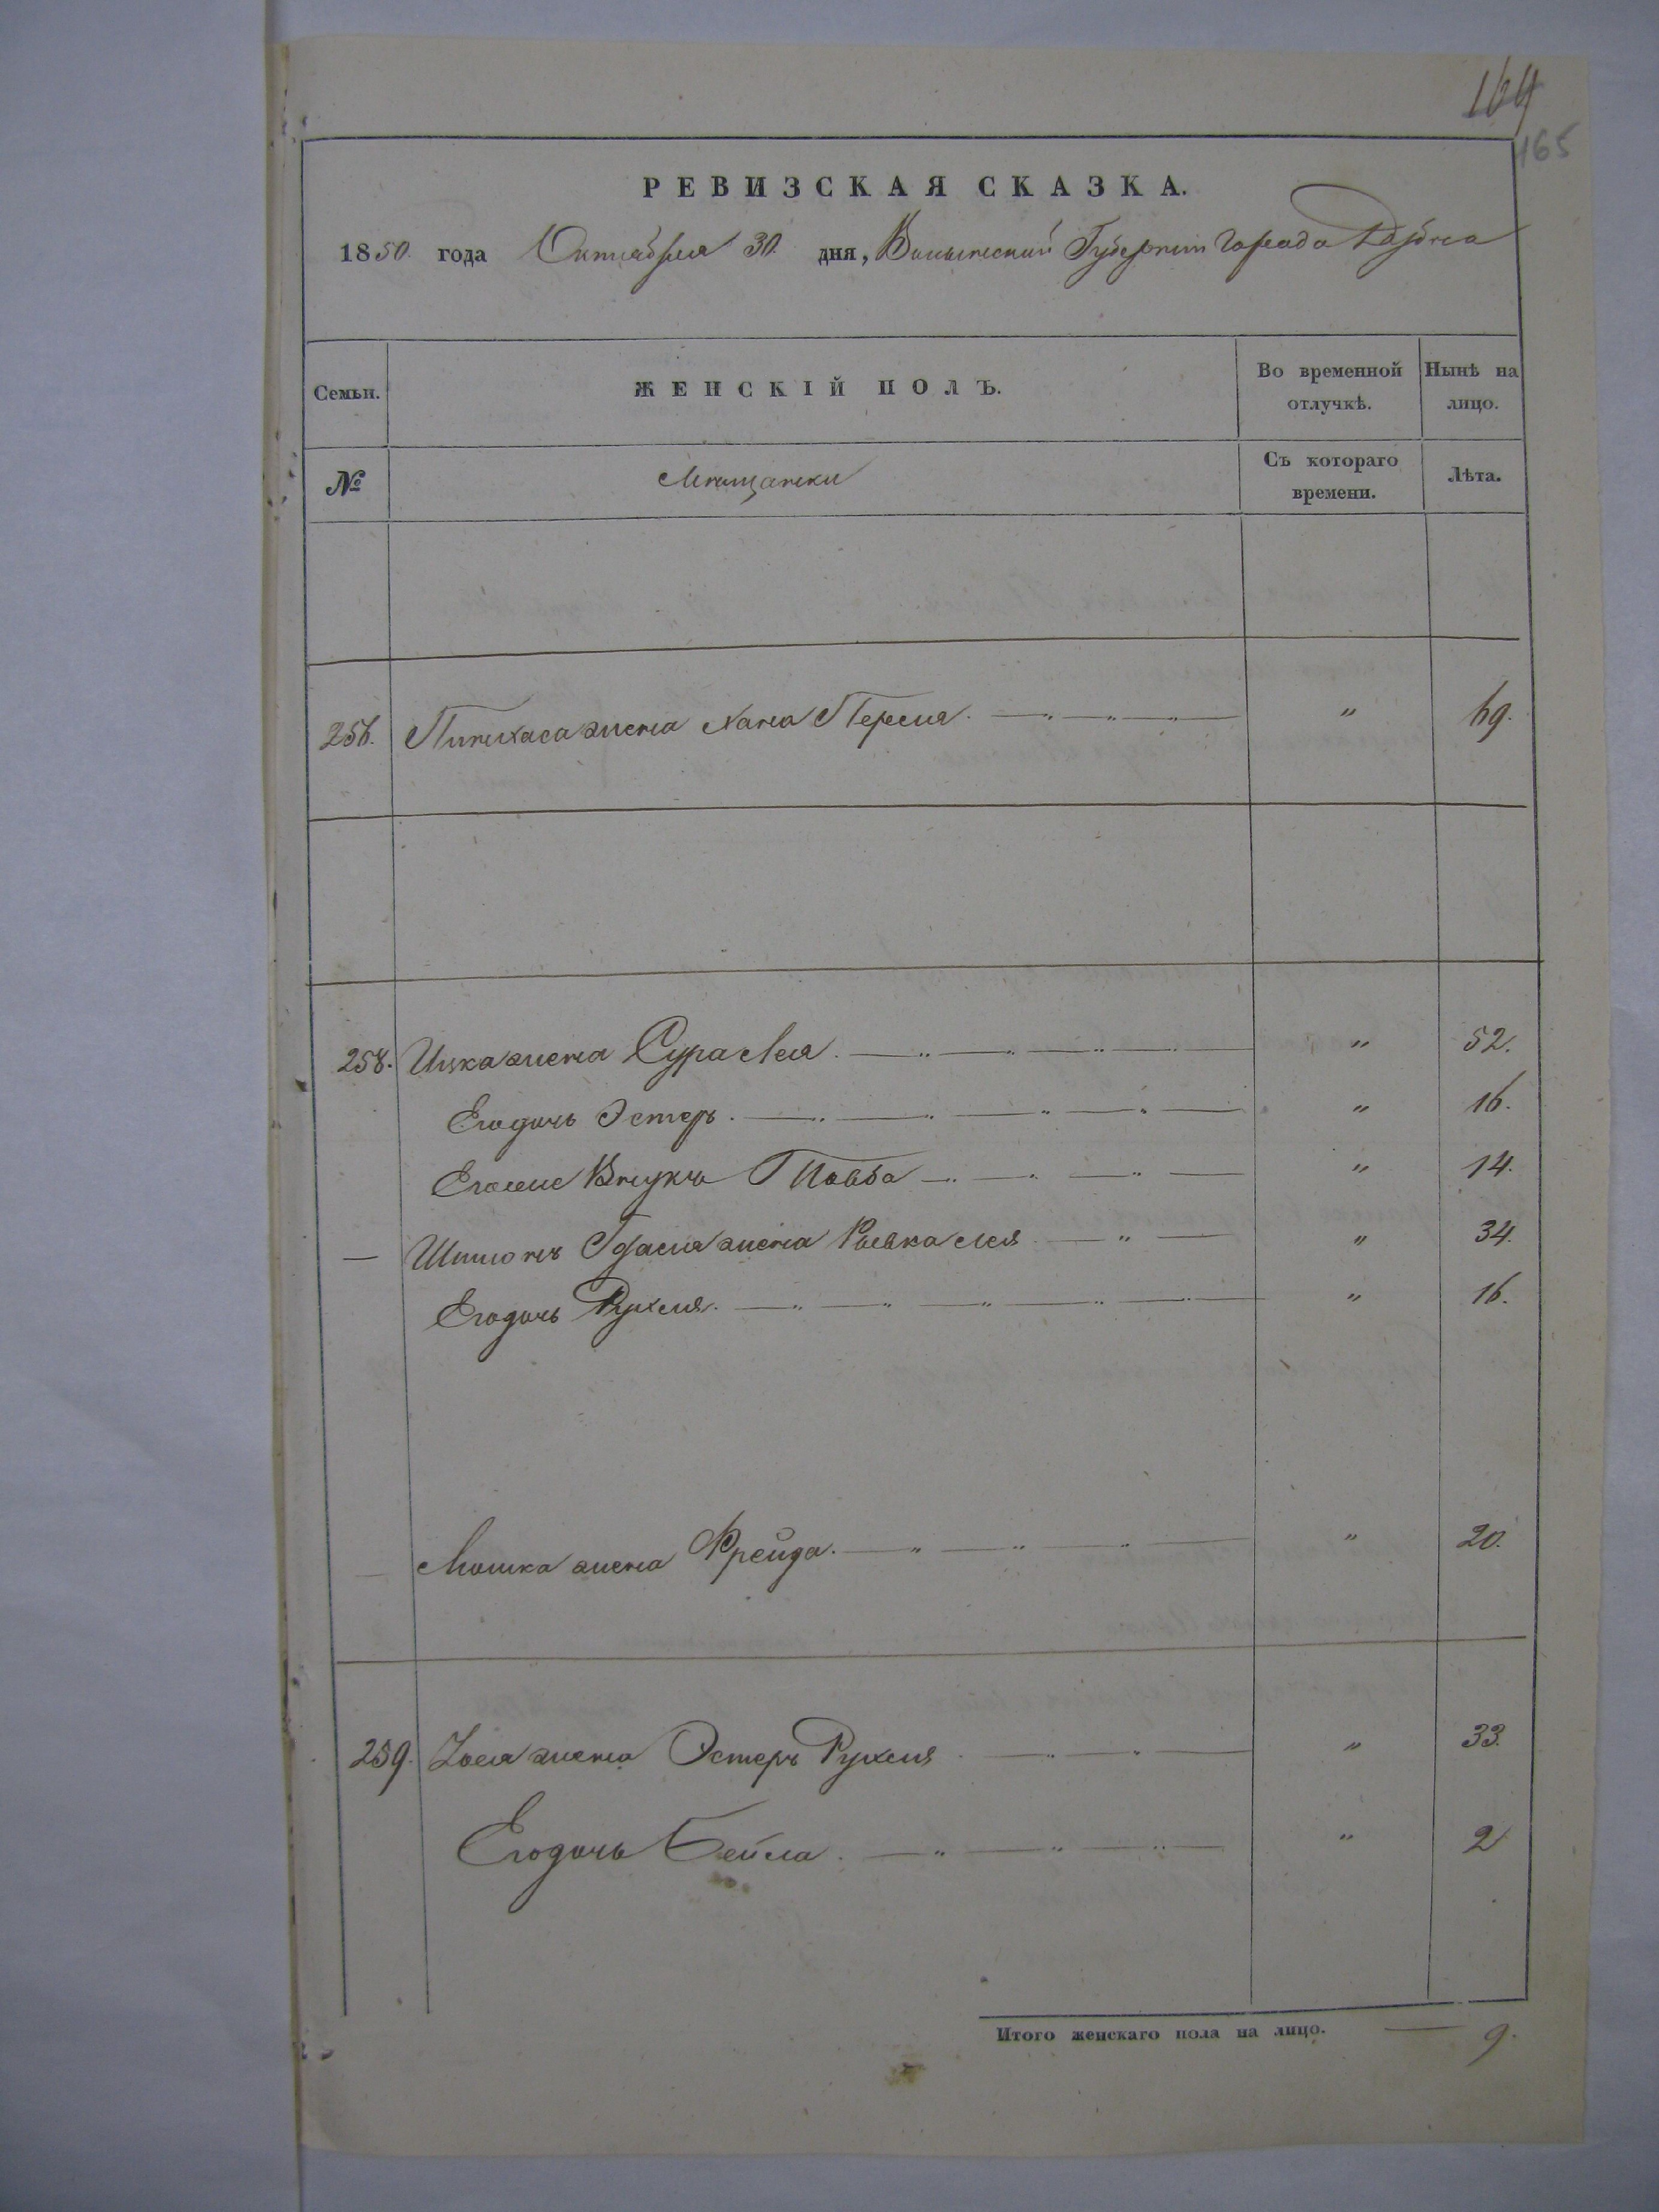 164
165
РЕВИЗСКАЯ СКАЗКА.
1850. года Октября 30. дня, Волынской Губернии города Дубна
Семьи.
ЖЕНСКІЙ ПОЛЪ.
Во временной отлучкѣ.
Нынѣ на лицо.
№
Мещанки
Съ котораго времени.
Лѣта.
256. Пинхаса жена Хана Перля. — „ — „ — „ — „ 69.
258. Ицка жена Сура Лея. — „ — „ — „ — „ — „ 52.
Его дочь Эстеръ. — „ — „ — „ — „ — „ 16.
Его же Внука Товба — „ — „ — „ — „ 14.
— Шимонъ Гдаля жена Ривка Лея — „ — „ 34.
Его дочь Рухля. — „ — „ — „ — „ — „ 16.
— Мошка жена Фрейда. — „ — „ — „ — „ 20.
259. Жена Эстеръ Рухля — „ — „ — „ 33.
Его дочь Бейла. — „ — „ — „ — „ 2
Итого женскаго пола на лицо. — 9.